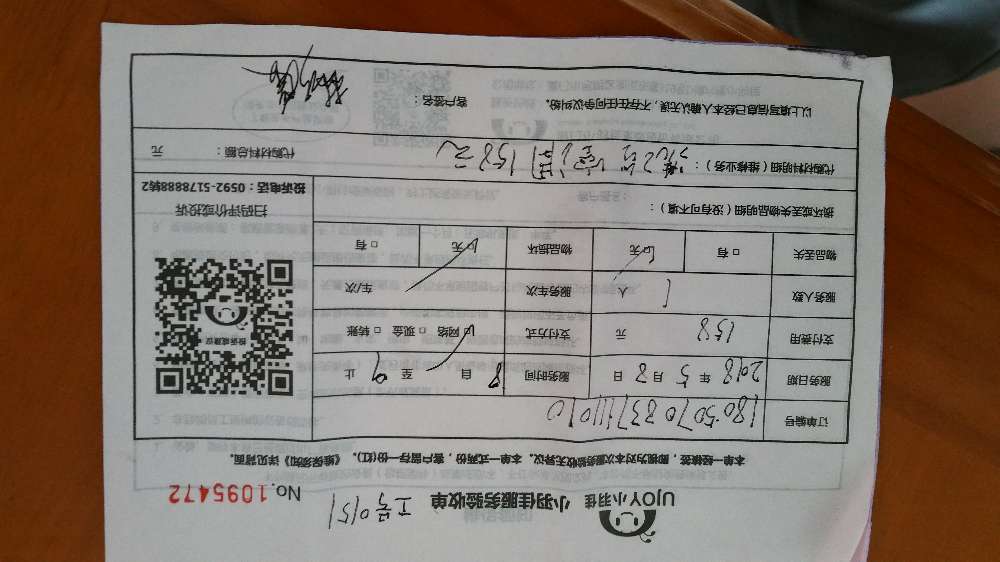 UJOY小羽佳 小羽佳服务验收单 工号0151 No.1095472
本单一经接签，即视为对本次服务验收无异议。本单一式两份，客户留存一份(红)。《维保须知》详见背面。
订单编号 1805070837111010
服务日期 2018 年 5 月 8 日 服务时间 8 自 至 9 止
支付费用 158 元 支付方式 ☑网络 □现金 □转账
服务人数 1 人 服务车次 车/次
物品丢失 □有 ☑无 物品损坏 □有 ☑无
损坏或丢失物品明细（没有可不填）：
投诉或建议
扫码评价或投诉
投诉电话：0592-5178888转2
代购材料明细（维修业务）： 洗 空调 158元 代购材料总额： 元
以上填写信息已经本人确认无误，不存在任何争议纠纷。 客户签名：